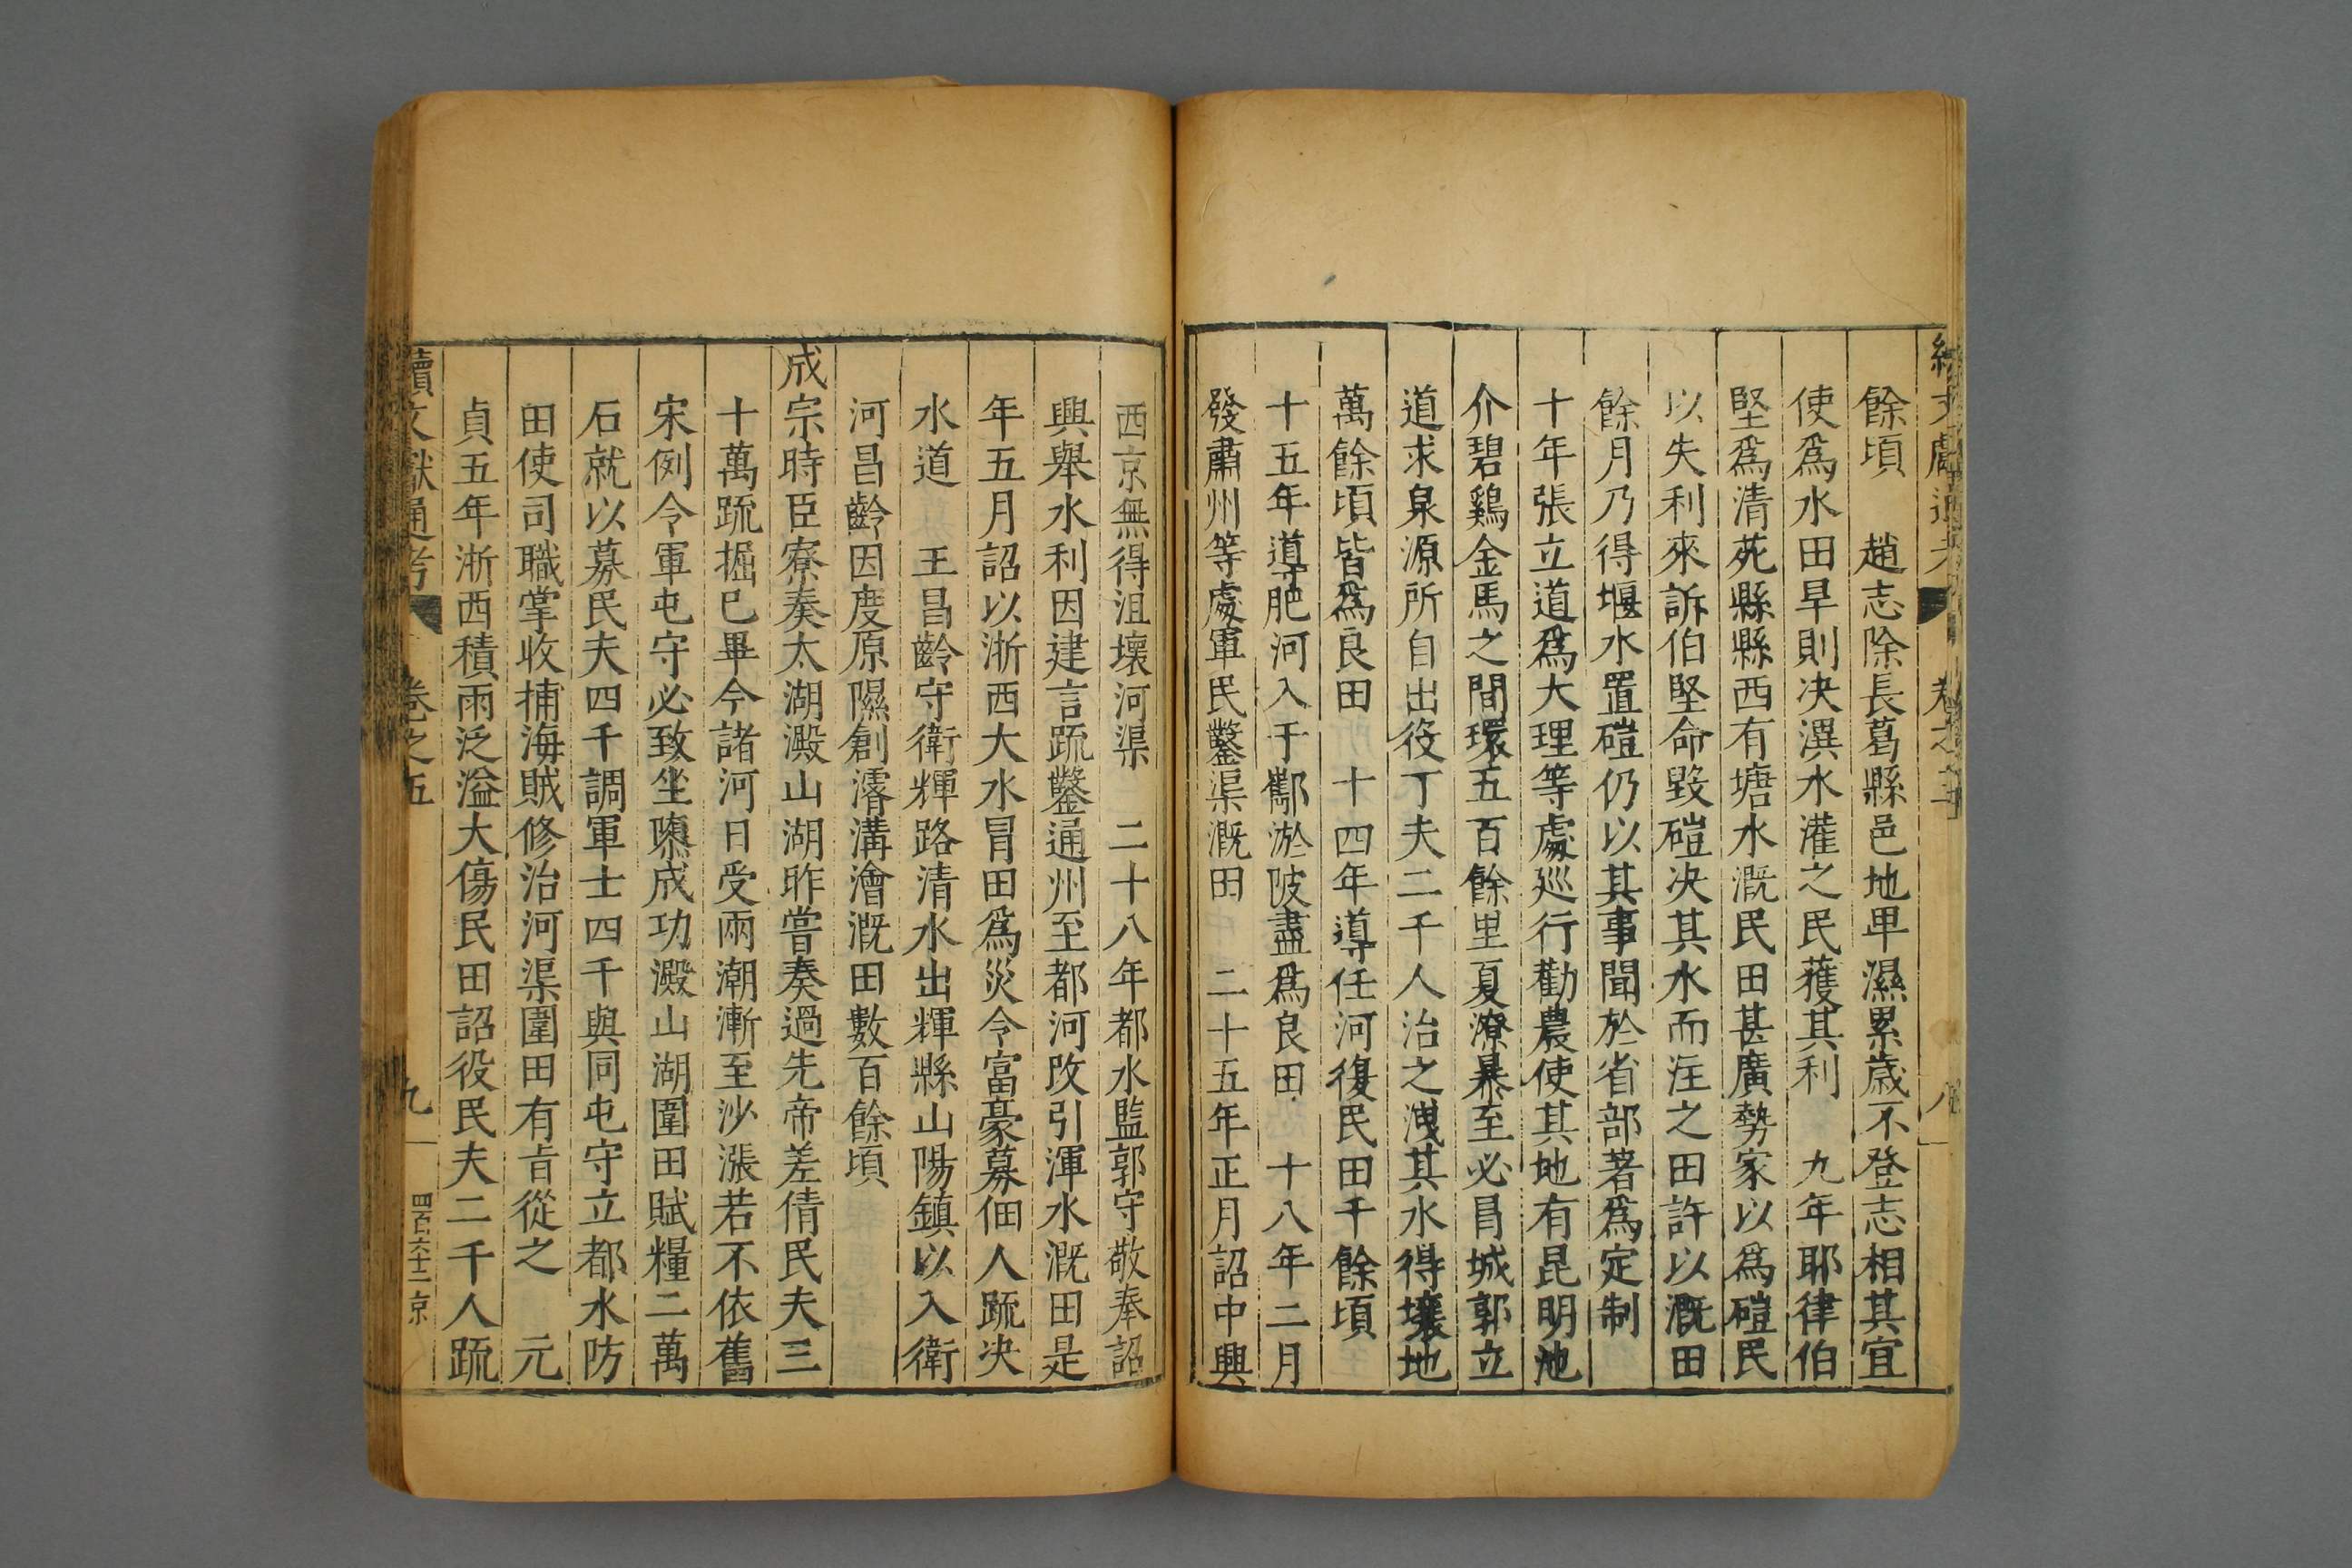 餘頃　趙志除長葛縣邑地甲濕累歳不登志相其宜
使爲水田旱則决潩水灌之民蒦其利　九年耶律伯
堅爲清苑縣縣西有塘水溉民田甚廣勢家以爲磑民
以失利來訴伯堅命毁磑决其水而注之田許以溉田
餘月乃得堰水置磑仍以其事聞於省部著爲定制
十年張立道爲大理等處廵行勸農使其地有昆明池
介碧鷄金馬之間環五百餘里夏潦暴至必冐城郭立
道求泉源所自出役丁夫二千人治之洩其水得壤地
萬餘頃皆爲良田　十四年導任河復民田千餘頃
十五年導肥河入于酅淤陂盡爲良田　十八年二月
發肅州等處軍民鑿渠溉田　二十五年正月詔中興
西京無得沮壞河渠　二十八年都水監郭守敬奉詔
興舉水利因建言䟽鑿通州至都河改引渾水溉田是
年五月詔以浙西大水冐田爲災令富豪募佃人䟽决
水道　王昌齡守衛輝路清水出輝縣山陽鎮以入衛
河昌齡因度原隰創濬溝澮溉田數百餘頃
成宗時臣寮奏太湖澱山湖昨嘗奏過先帝差倩民夫三
十萬䟽掘已畢今諸河日受兩潮漸至沙漲若不依舊
宋例令軍屯守必致坐隳成功澱山湖圍田賦糧二萬
石就以募民夫四千調軍士四千與同屯守立都水防
田使司職掌收捕海賊修治河渠圍田有旨從之　元
貞五年浙西積雨泛溢大傷民田詔役民夫二千人䟽
續文獻通考　卷之五　九　四百六十二　京